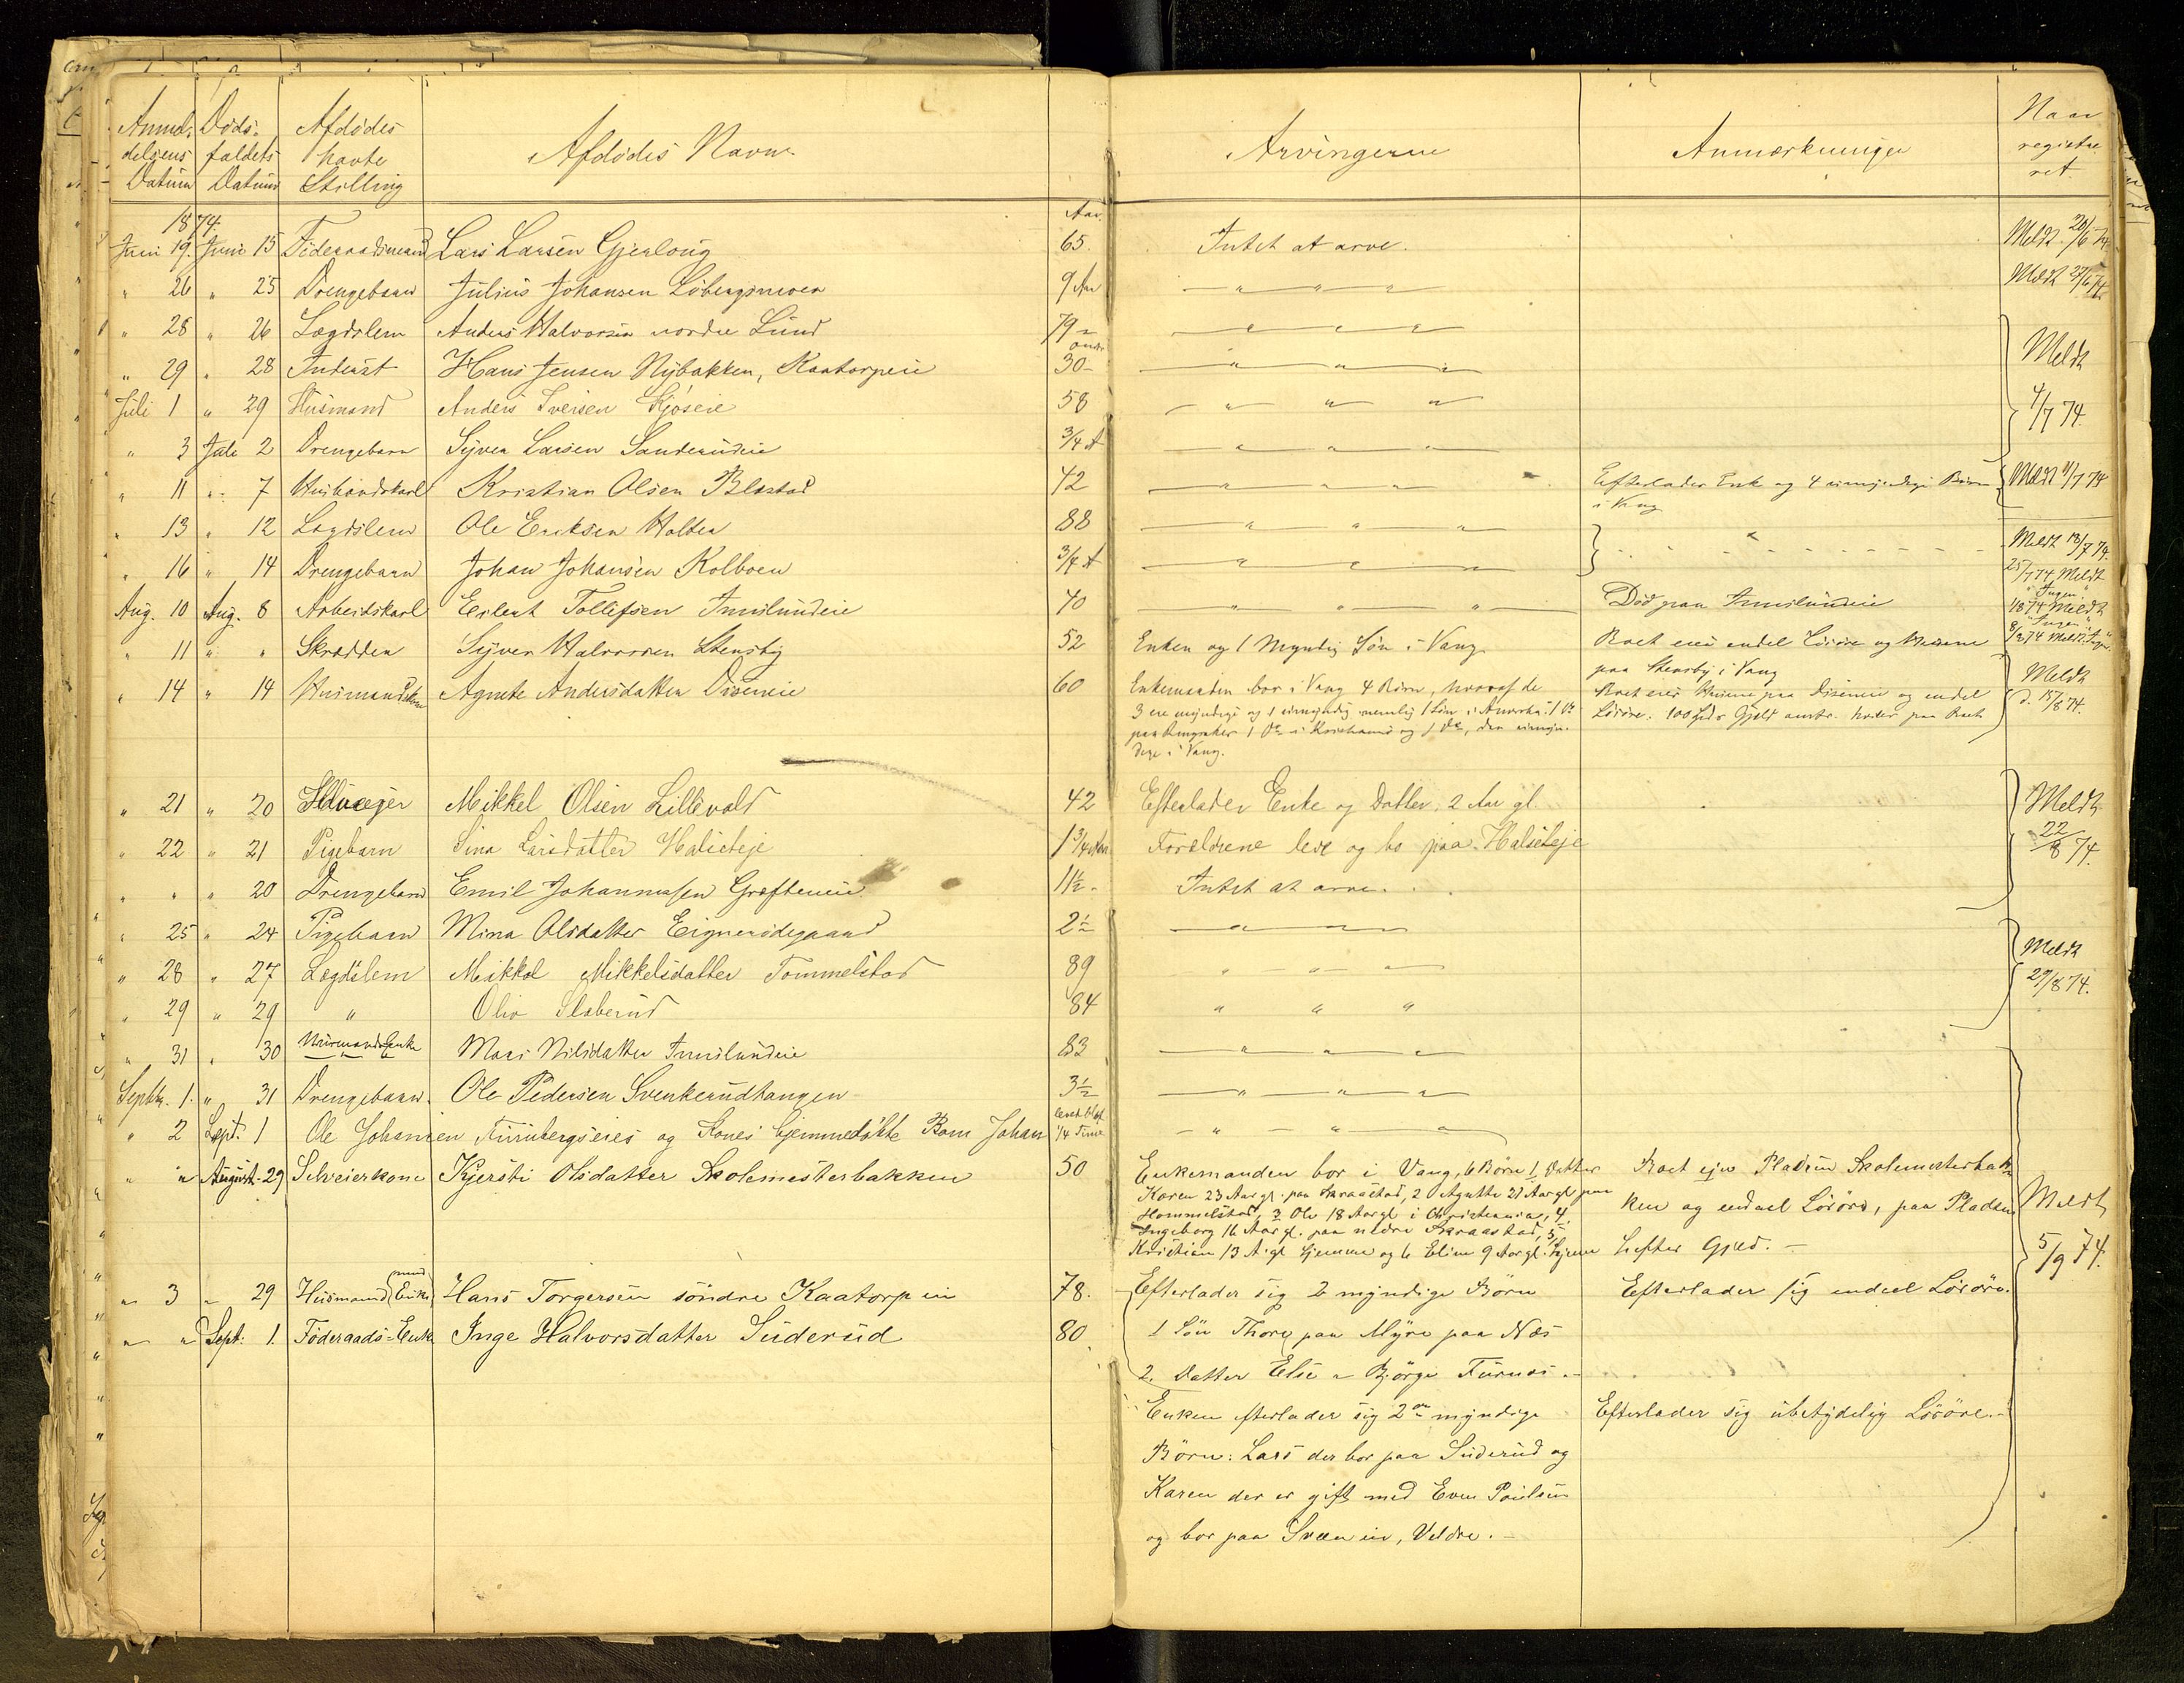 Anmel- Døds- Afdødes Afdødes Navn Arvingerne Anmærkninger Naar
delsens faldets havte registre-
Datum Datum Stilling ret.
1874. Aar.
Juni 19. Juni 15 Føderaadsmand Lars Larsen Gjerloug 65. Intet at arve. Meldt 20/6 74.
" 26 " 25 Drengebarn Julius Johansen Løbergsmoen 9 Aar " " " Meldt 27/6 74
" 28 " 26 Lægdslem Anders Halvorsen nordre Lund 79 " " " Meldt
" 29 " 28 Inderst Hans Jensen Nybakken, Kaatorpeie 30 " " " 4/7 74.
Juli 1 " 29 Husmand Anders Iversen Gjøseie 58 " " "
" 3 Juli 2 Drengebarn Syver Larsen Sanderudeie 3/4 A " " "
" 11 " 7 Husbondskarl Kristian Olsen Blæstad 42 " " " Efterlader Enke og 4 umyndige Børn Meldt 11/7 74
i Vang
" 13 " 12 Lægdslem Ole Eriksen Holten 88 " " " Meldt 18/7 74.
" 16 " 14 Drengebarn Johan Johansen Kolboen 3/4 A " " " 25/7 74 Meldt
"Ingen"
Aug. 10 Aug. 8 Arbeidskarl Erlent Tollefsen Imislundeie 40 " " " Død paa Imislundeie 1/8 74 Meldt
"Ingen"
" 11 " " Skrædder Syver Halvorsen Stensby 52 Enken og 1 Myndig Søn i Vang. Boet eier endel Løsøre og Husene 8/8 74 Meldt "Ingen"
paa Stensby i Vang
" 14 " 14 Husmandskone Agnete Andersdatter Diseneie 60 Enkemanden bor i Vang 4 Børn, hvoraf de Boet eier Husene paa Diseneie og endel Meldt
3 ere myndige og 1 umyndig nemlig 1 Søn i Amerika 1 Do Løsøre. 100 Spd Gjeld omtr. hviler paa Boet d. 15/8 74.
paa Ringsaker 1 Do i Kristiania og 1 Do, den umyn-
dige i Vang.
" 21 " 20 Selveier Mikkel Olsen Lillevold 42 Efterlader Enke og Datter, 2 Aar gl. Meldt
" 22 " 21 Pigebarn Sina Larsdatter Halseteje 1 3/4 Aar Forældrene leve og bo paa Halseteje 22/8 74.
" " " 20 Drengebarn Emil Johannessen Grøfteneie 11½ Intet at arve.
" 25 " 24 Pigebarn Mina Olsdatter Eignerødegaard 2½ " " "
" 28 " 27 Lægdslem Mikkel Mikkelsdatter Tommelstad 89 " " " Meldt
" 29 " 29 " Olia Slaberud 84 " " " 29/8 74.
" 31 " 30 Husmands Enke Mari Nilsdatter Imislundeie 83 " " "
Septbr. 1. " 31 Drengebarn. Ole Pedersen Svenkerudtangen 3½ " " "
" 2 Sept. 1 Ole Johansen Furubergseies og Kones hjemmedøbte Barn Johan 1/4 Time " " "
" " August 29 Selveierkone Kjersti Olsdatter Skolemesterbakken 50 Enkemanden bor i Vang, 6 Børn 1, Datter Boet ejer Pladsen Skolemesterbak-
Karen 23 Aar gl. paa Skraastad, 2 Agathe 21 Aar gl paa ken og endeel Løsøre, paa Pladsen Meldt
Hommelstad, 3 Ole 18 Aar gl i Christiania, 4
Ingeborg 16 Aar gl. paa nedre Skraastad, 5
Kristian 13 A. gl hjemme og 6 Eline 9 Aar gl. hjemme hefter Gjeld. 5/9 74.
" 3 " 29 Husmand med Enke Hans Torgersen søndre Kaatorp eie 78. Efterlader sig 2 myndige Børn Efterlader sig endeel Løsøre.
" " Sept. 1. Føderaads-Enke Inge Halvorsdatter Suderud 80. 1 Søn Thore paa Myre paa Næs
2. Datter Else " Bjørge Furnæs
Enken efterlader sig 2de myndige Efterlader sig ubetydelig Løsøre.
Børn: Lars der bor paa Suderud og
Karen der er gift med Even Poulsen
og bor paa Sveen eie, Veldre.